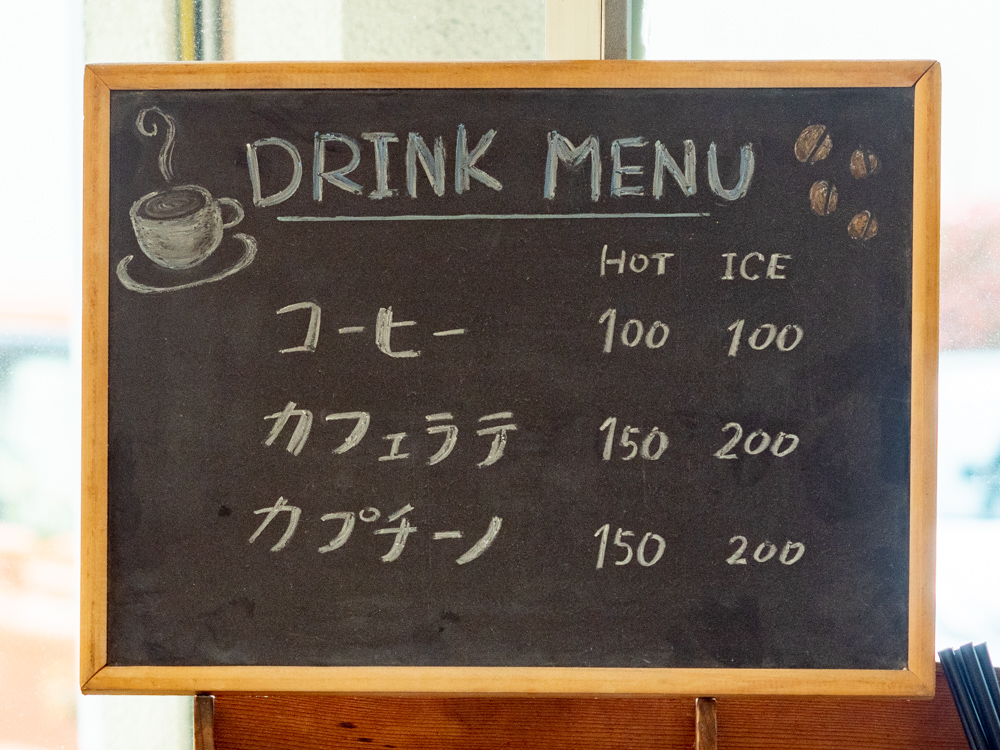 DRINK MENU
HOT ICE
コーヒー 100 100
カフェラテ 150 200
カプチーノ 150 200